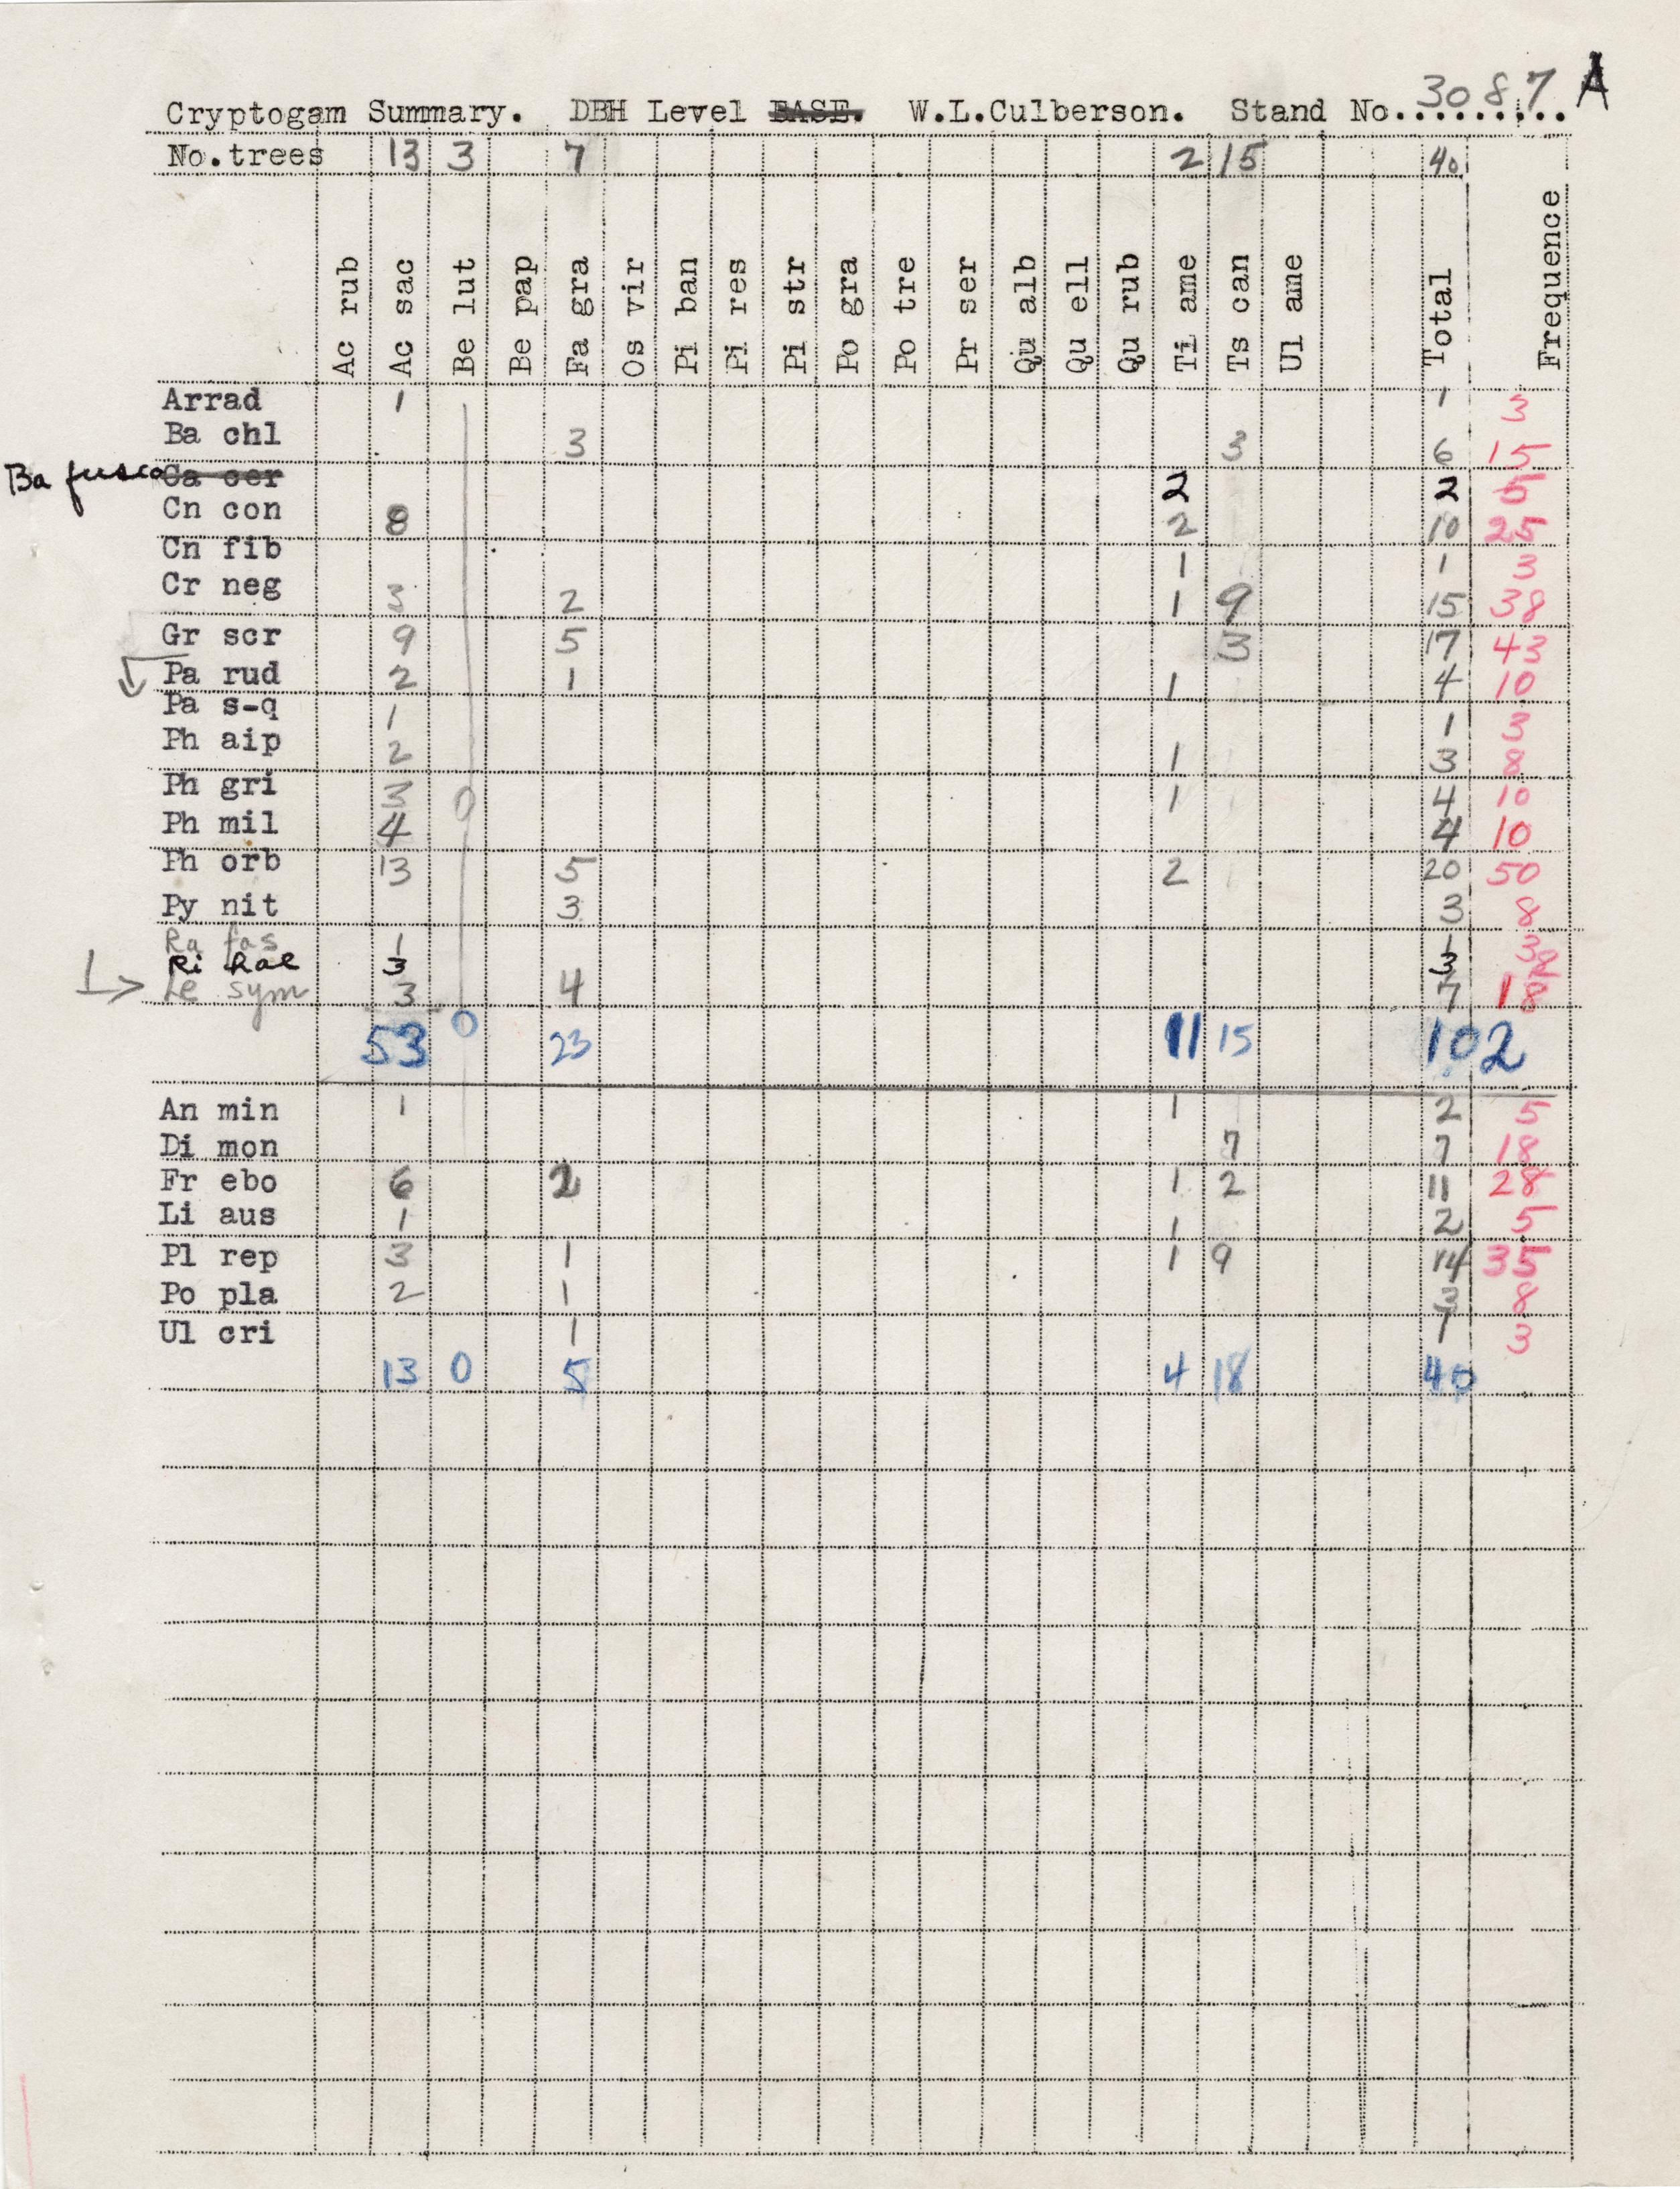 Cryptogam Summary. DBH Level BASE. W.L.Culberson. Stand No......... 3087 A
No.trees 13 3 7 2 15 40
Ac rub Ac sac Be lut Be pap Fa gra Os vir Pi ban Pi res Pi str Po gra Po tre Pr ser Qu alb Qu ell Qu rub Ti ame Ts can Ul ame Total Frequence
Arrad 1 1 3
Ba chl 3 3 6 15
Ba fusca Ca cer 2 2 5
Cn con 8 2 10 25
Cn fib 1 1 3
Cr neg 3 2 1 9 15 38
Gr scr 9 5 3 17 43
Pa rud 2 1 1 4 10
Pa s-q 1 1 3
Ph aip 2 1 3 8
Ph gri 3 0 1 4 10
Ph mil 4 4 10
Ph orb 13 5 2 20 50
Py nit 3 3 8
Ra fas 1 1 3
Ri hal 3 3 8
Le sym 3 4 7 18
53 0 23 11 15 102
An min 1 1 2 5
Di mon 7 7 18
Fr ebo 6 2 1 2 11 28
Li aus 1 1 2 5
Pl rep 3 1 1 9 14 35
Po pla 2 1 3 8
Ul cri 1 1 3
13 0 5 4 18 40